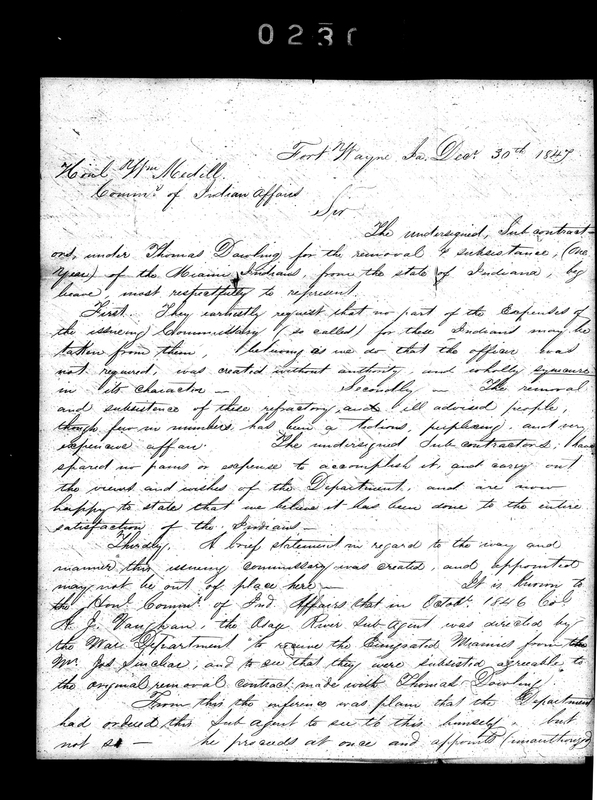 0230
Fort Wayne Ia. Decr. 30th 1847
Honl. Wm Medill
Commr. of Indian Affairs
Sir
The undersigned, Sub contract-
ors, under Thomas Dowling for the removal & subsistance, (one
year) of the Miami Indians, from the state of Indiana, by
leave, most respectfully to represent
First. They earnestly request that no part of the Expenses of
the issueing Commissary (so called) for these Indians may be
taken from them, believing as we do that the office was
not required, was created without authority, and wholly synecure
in its character — Secondly — The removal
and subsistence of these refractory, and ill advised people,
though few in numbers has been a tedious, perplexing, and very
expensive affair. The undersigned Sub contractors, have
spared no pains or expense to accomplish it, and carry out
the views and wishes of the Department, and are now
happy to state that we believe it has been done to the entire
satisfaction of the Indians —
Thirdly. A brief statement in regard to the way and
manner this issueing commissary was created, and appointed
may not be out of place here — It is known to
the Honl. Commr. of Ind. Affairs that in Octobr. 1846 Col.
A. J. Vaughan, the Osage River Sub Agent was directed by
the War Department "to receive the Emigrated Miamies from the
Mr. Jos Sinclear, and to see that they were subsisted agreeable to
the original removal contract made with Thomas Dowling."
From this the inference was plain that the Department
had ordered this Sub Agent to see to this himself, but
not so — he proceeds at once and appoints (unauthorized